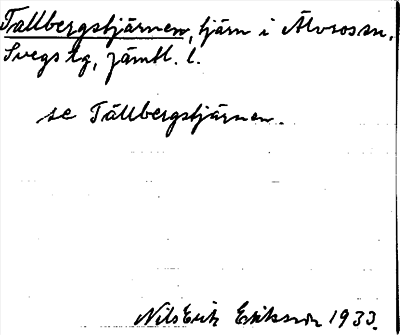 Tallbergstjärnen, tjärn i Älvros sn,
Svegs tg, Jämtl. l.
se Tållbergstjärnen.
Nils Erik Eriksson 1933.